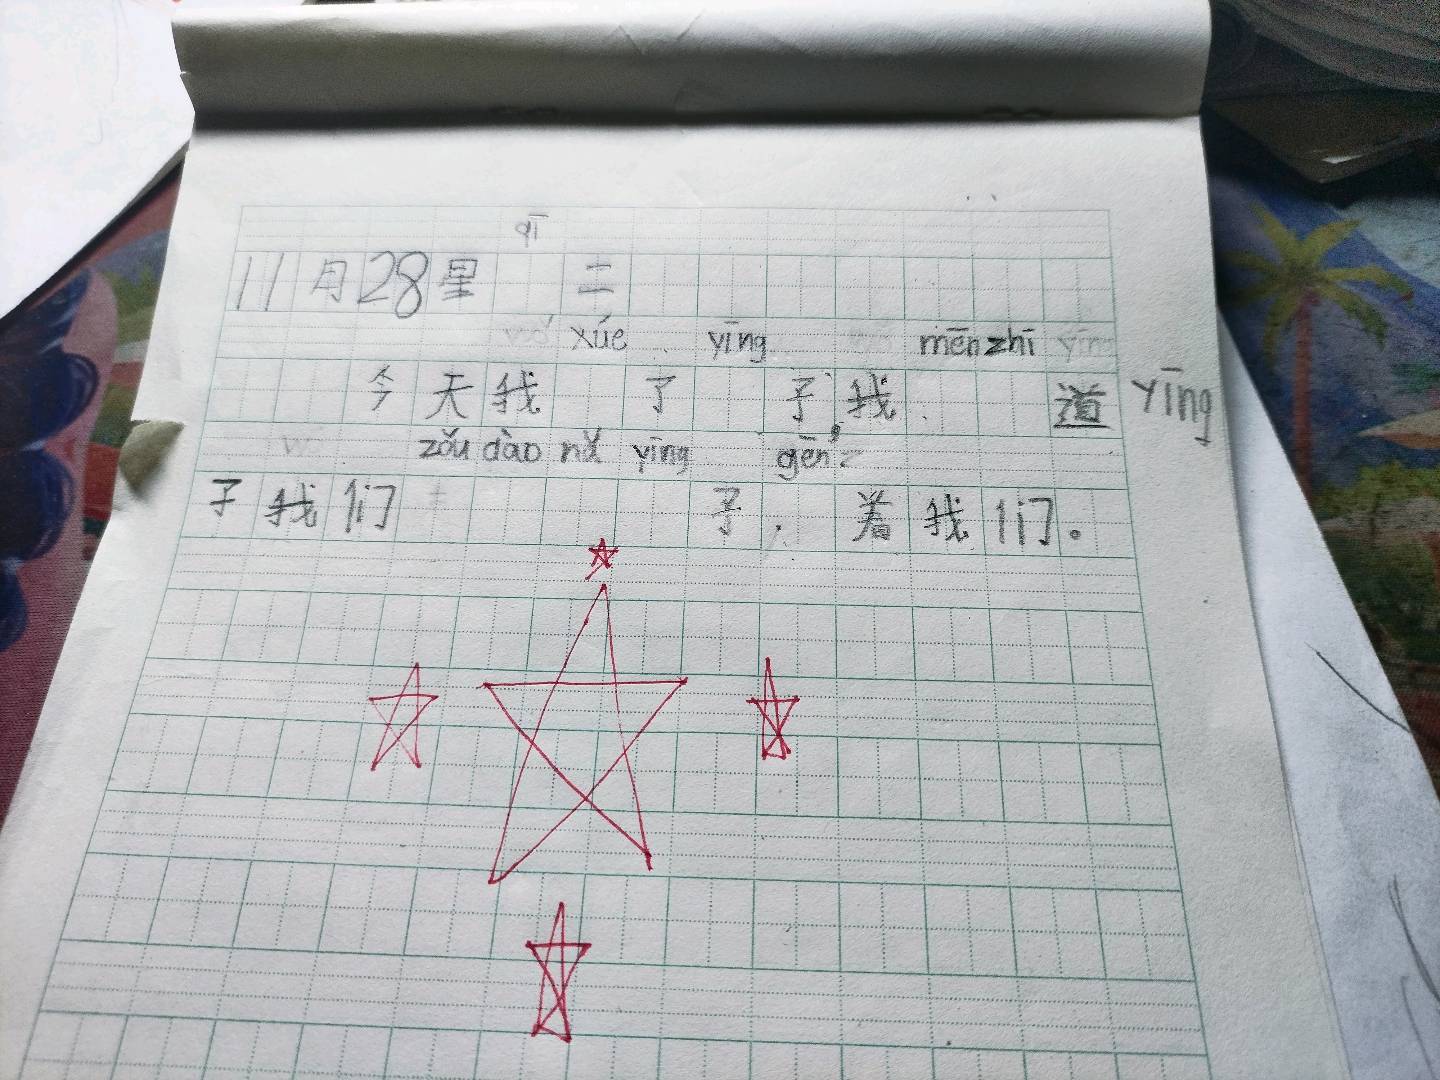 qī
11月28星 二
xúe yīng mēn zhī
今天我 了 子,我 道 yīng
zǒu dào nǎ yīng gēn
子我们 子, 着我们。